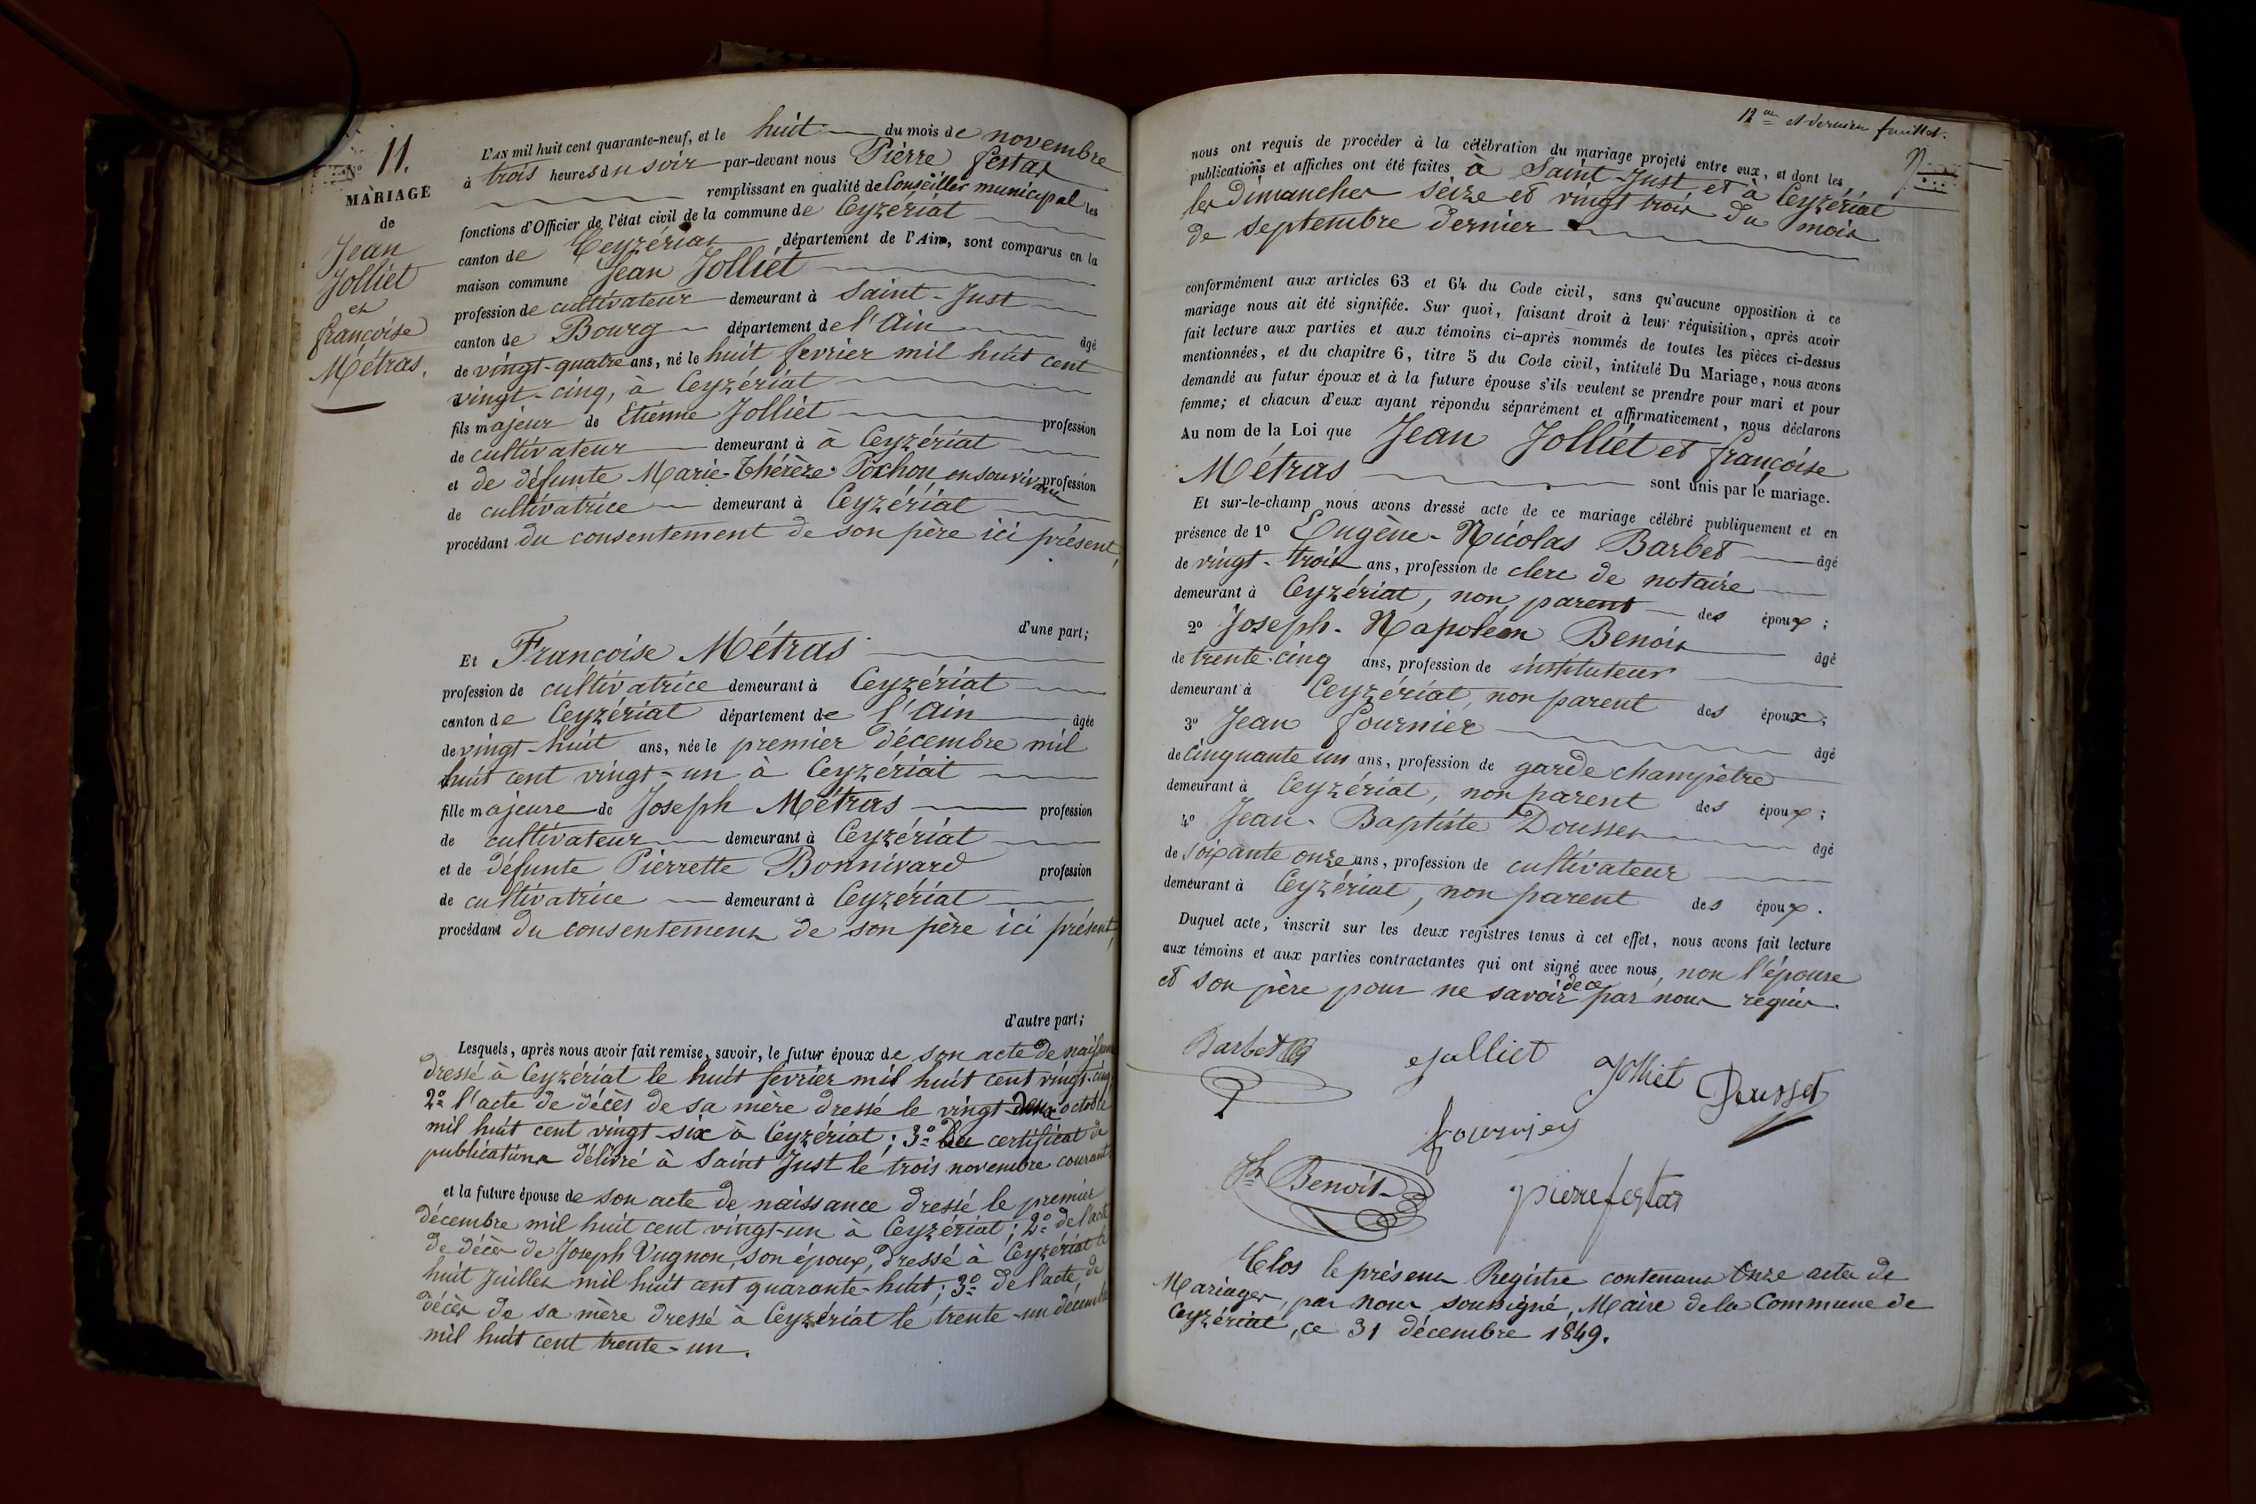 N° 11.
MARIAGE
de
Jean
Jolliet
et
françoise
Métras.
L'AN mil huit cent quarante-neuf, et le huit du mois de novembre
à trois heures du soir par-devant nous Pierre festas
remplissant en qualité de Conseiller municipal les
fonctions d'Officier de l'état civil de la commune de Ceyzériat
canton de Ceyzériat département de l'Ain, sont comparus en la
maison commune Jean Jolliet
profession de cultivateur demeurant à Saint-Just
canton de Bourg département de l'Ain âgé
de vingt-quatre ans, né le huit fevrier mil huit cent
vingt-cinq, à Ceyzériat
fils majeur de Etienne Jolliet profession
de cultivateur demeurant à à Ceyzériat
et de défunte Marie-Thérèze Pochon en son vivant profession
de cultivatrice demeurant à Ceyzériat
procédant du consentement de son père ici présent,
d'une part;
Et Françoise Métras
profession de cultivatrice demeurant à Ceyzériat
canton de Ceyzériat département de l'Ain âgée
de vingt-huit ans, née le premier décembre mil
huit cent vingt-un à Ceyzériat
fille majeure de Joseph Métras profession
de cultivateur demeurant à Ceyzériat
et de défunte Pierrette Bonnivard profession
de cultivatrice demeurant à Ceyzériat
procédant du consentement de son père ici présent,
d'autre part;
Lesquels, après nous avoir fait remise, savoir, le futur époux de son acte de naissance
dressé à Ceyzériat le huit fevrier mil huit cent vingt-cinq
2° l'acte de décès de sa mère dressé le vingt-deux octobre
mil huit cent vingt-six à Ceyzériat; 3° certificat de
publications délivré à Saint Just le trois novembre courant
et la future épouse de son acte de naissance dressé le premier
décembre mil huit cent vingt-un à Ceyzériat; 2° de l'acte
de décès de Joseph Vugnon, son époux, dressé à Ceyzériat le
huit Juillet mil huit cent quarante-huit; 3° de l'acte de
décès de sa mère dressé à Ceyzériat le trente-un décembre
mil huit cent trente-un.
12me et dernier feuillet.
nous ont requis de procéder à la célébration du mariage projeté entre eux, et dont les
publications et affiches ont été faites à Saint-Just et à Ceyzériat
les dimanches seize et vingt trois du mois
de septembre dernier
conformément aux articles 63 et 64 du Code civil, sans qu'aucune opposition à ce
mariage nous ait été signifiée. Sur quoi, faisant droit à leur réquisition, après avoir
fait lecture aux parties et aux témoins ci-après nommés de toutes les pièces ci-dessus
mentionnées, et du chapitre 6, titre 5 du Code civil, intitulé Du Mariage, nous avons
demandé au futur époux et à la future épouse s'ils veulent se prendre pour mari et pour
femme; et chacun d'eux ayant répondu séparément et affirmativement, nous déclarons
Au nom de la Loi que Jean Jolliet et françoise
Métras sont unis par le mariage.
Et sur-le-champ nous avons dressé acte de ce mariage célébré publiquement et en
présence de 1° Eugène-Nicolas Barbet âgé
de vingt-trois ans, profession de clerc de notaire
demeurant à Ceyzériat, non parent des époux;
2° Joseph-Napoleon Benoit âgé
de trente-cinq ans, profession de instituteur
demeurant à Ceyzériat, non parent des époux;
3° Jean fournier âgé
de cinquante un ans, profession de garde champêtre
demeurant à Ceyzériat, non parent des époux;
4° Jean-Baptiste Dousset âgé
de soixante onze ans, profession de cultivateur
demeurant à Ceyzériat, non parent des époux.
Duquel acte, inscrit sur les deux registres tenus à cet effet, nous avons fait lecture
aux témoins et aux parties contractantes qui ont signé avec nous, non l'épouse
et son père pour ne savoir de ce par nous requis.
Barbet
Jolliet
Jolliet
Dousset
fournier
Jh Benoit
pierre festas
Clos le présent Registre contenant Onze actes de
Mariages, par nous soussigné, Maire de la Commune de
Ceyzériat, ce 31 décembre 1849.